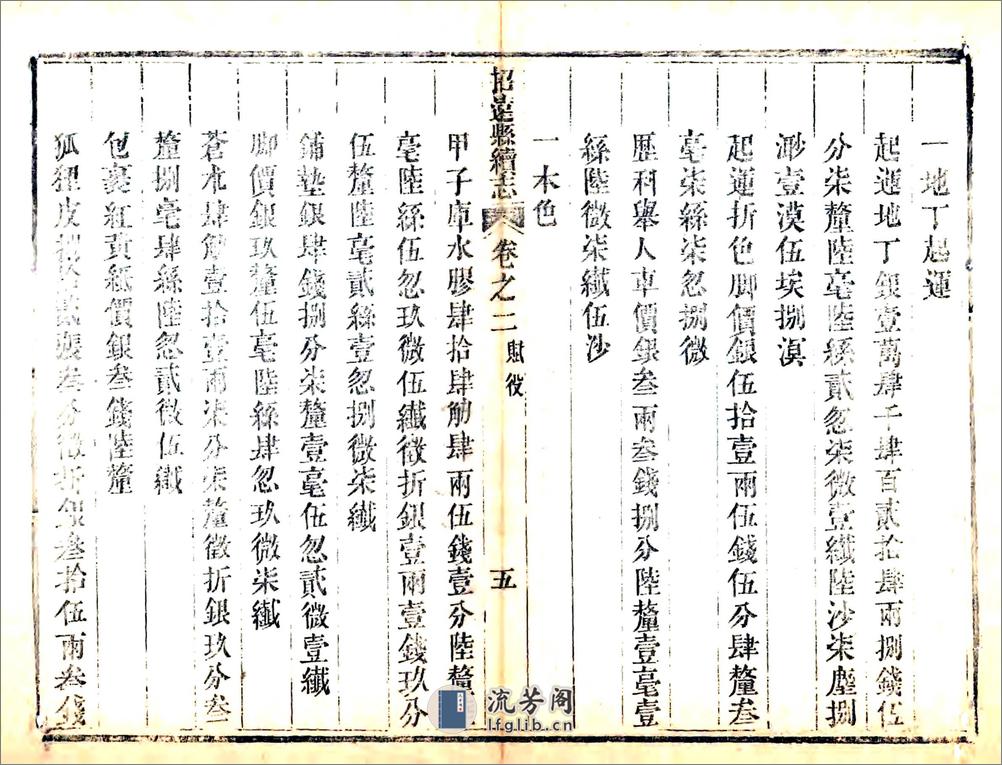 一地丁起運
起運地丁銀壹萬肆千肆百貳拾肆兩捌錢伍
分柒釐陸毫陸絲貳忽柒微壹纖陸沙柒塵捌
渺壹漠伍埃捌溟
起運折色脚價銀伍拾壹兩伍錢伍分肆釐叁
毫柒絲柒忽捌微
歷科舉人車價銀叁兩叁錢捌分陸釐壹毫壹
絲陸微柒纖伍沙
一本色
招遠縣續志 卷之二 賦役 五
甲子庫水膠肆拾肆觔肆兩伍錢壹分陸釐
毫陸絲伍忽玖微伍纖徵折銀壹兩壹錢玖分
伍釐陸毫貳絲壹忽捌微柒纖
鋪墊銀肆錢捌分柒釐壹毫伍忽貳微壹纖
脚價銀玖釐伍毫陸絲肆忽玖微柒纖
蒼朮肆觔壹拾壹兩柒分柒釐徵折銀玖分叁
釐捌毫肆絲陸忽貳微伍纖
包裹紅黄紙價銀叁錢陸釐
狐狸皮貳張叁分徵折銀叁拾伍兩叁錢
流芳阁
lfglib.cn